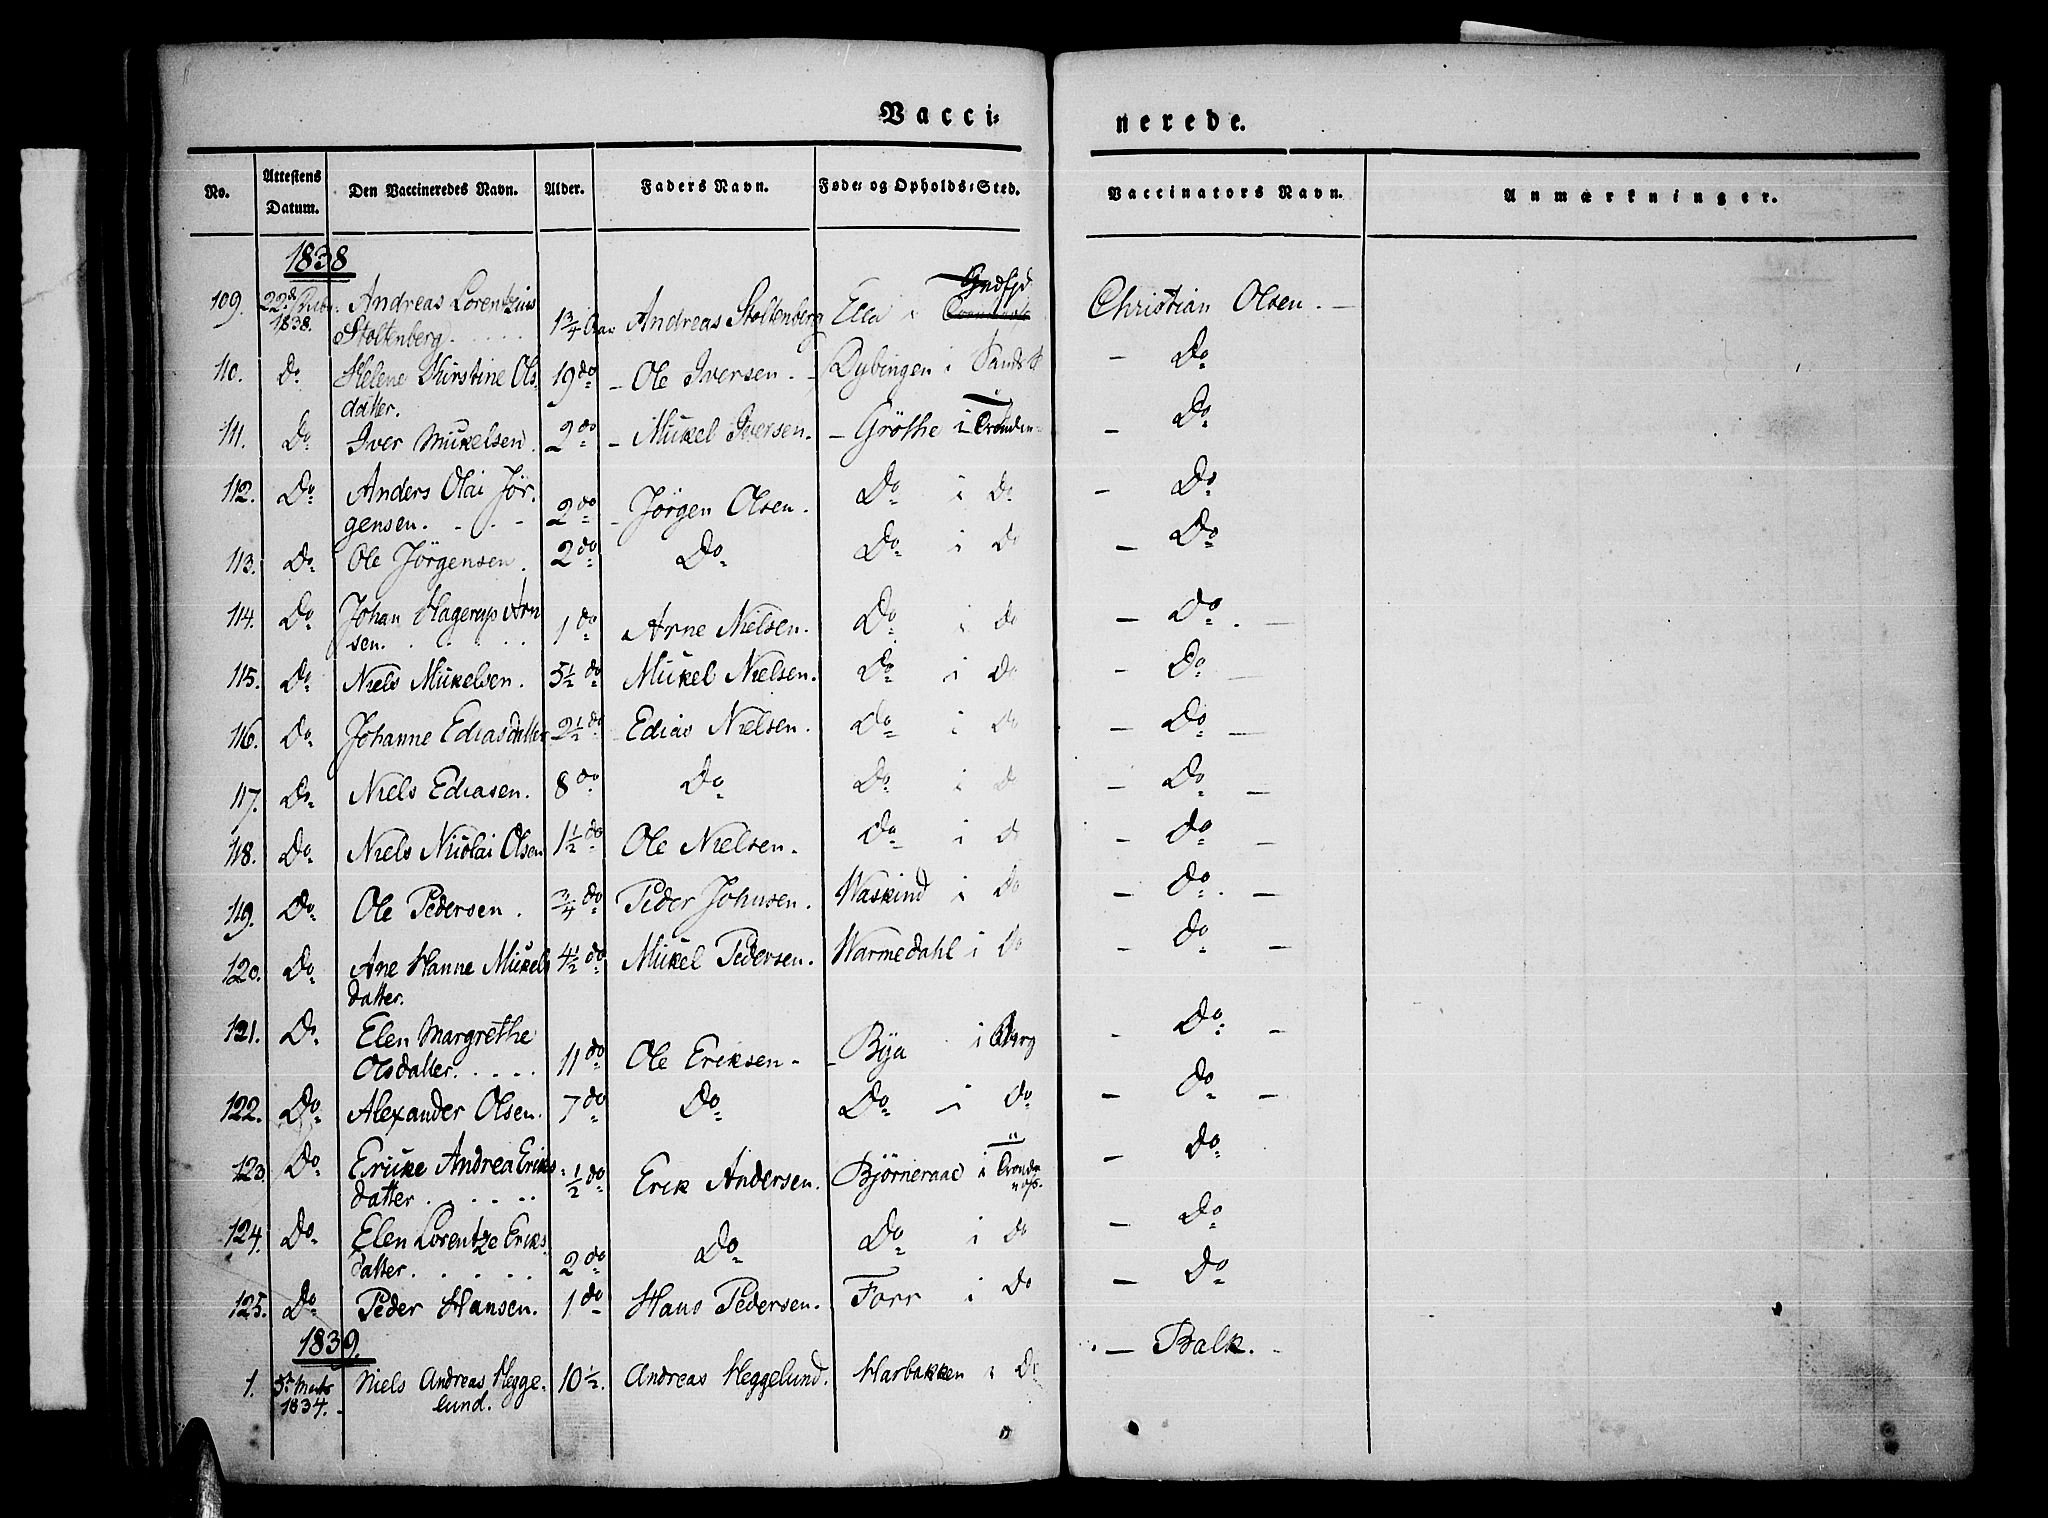 Vacci-
nerede.
No. Attestens Datum. Den Vaccineredes Navn. Alder. Faders Navn. Føde- og Opholds-Sted. Vaccinators Navn. Anmærkninger.
1838
109. 22de 1838. Andreas Lorentzius Stoltenberg. 1 3/4 Aar Andreas Stoltenberg Ella i Christian Olsen. —
110. Do Helene Kirstine Ols-datter. 19 do – Ole Iversen. – Dybingen i – Do
111. Do Iver Mikelsen. 2 do – Mikel Iversen. – Grøthe i Tronden- – Do
112. Do Anders Olai Jør-gensen. 2 do – Jörgen Olsen. Do i do – Do
113. Do Ole Jörgensen. 2 do Do Do i do – Do
114. Do Johan Hagerup Arn sen. 1 do Arne Nielsen. Do i do – Do. –
115. Do Niels Mikelsen. 5 1/2 do Mikel Nielsen. Do i do – Do –
116. Do Johanne Ediasdatter 2 1/2 do Edias Nielsen. Do i do – Do –
117. Do Niels Ediasen. 8 do Do Do i do – Do –
118. Do Niels Nicolai Olsen 1 1/2 do Ole Nielsen. Do i d – do –
119. Do Ole Pedersen. 3/4 do Peder Johnsen. Waskind i Do – do. –
120. Do Ane Hanne Mikels datter. 4 1/2 do Mikel Pedersen. Warmedahl i Do – do –
121. Do Elen Margrethe Olsdatter. 11 do Ole Eriksen – – Bya i Berg – Do –
122. Do Alexander Olsen. 7 do Do Do – do – do –
123. Do Ericke Andrea Eriks-datter. 1/2 do Erik Andersen. Bjørneraae i Tronde næs. – do
124. Do Elen Lorentze Eriks datter. 2 do Do Do i do – do
125. Do Peder Hansen. 1 do Hans Pedersen. Forr i Do – Do
1839.
1. 1834. Niels Andreas Hegge-lund. 10 1/2. Andreas Heggelund. Harbakken i Do – Balk.